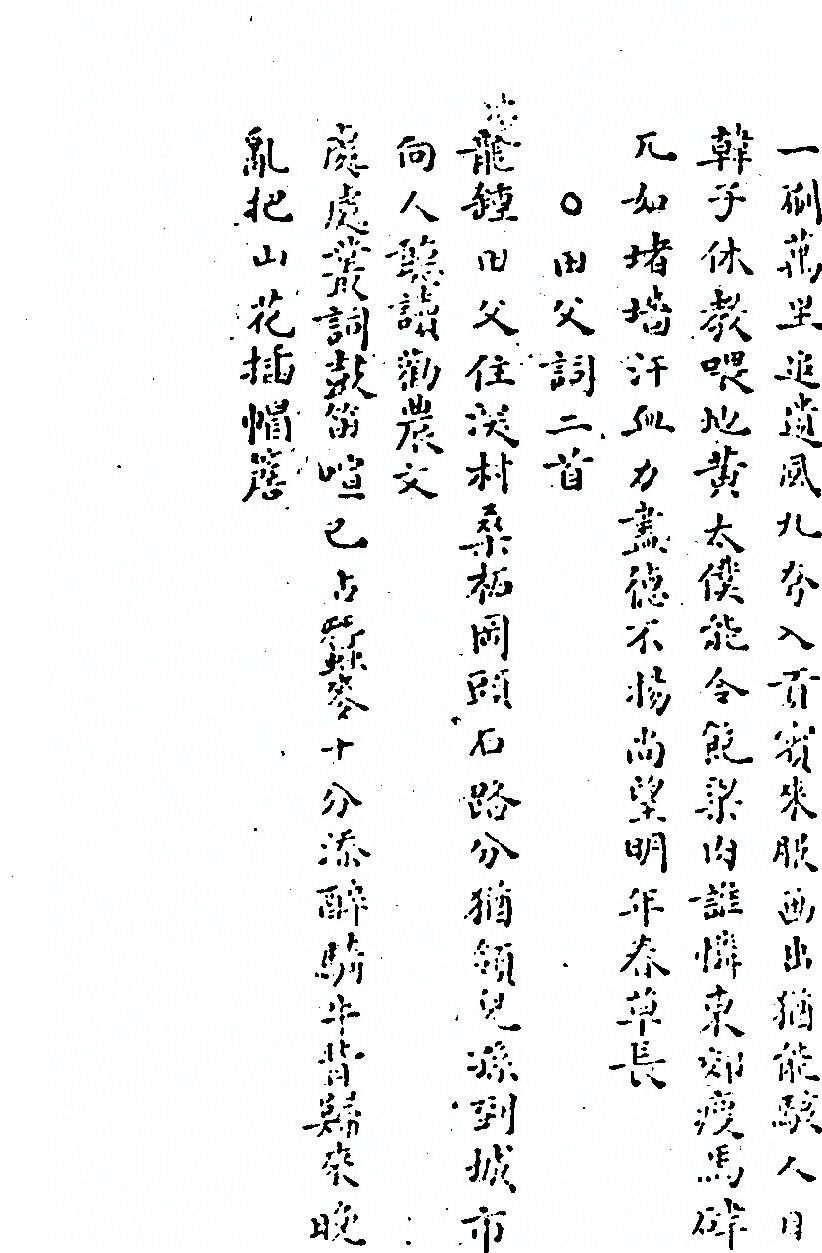 一刷萬里追遺風九奔入貢賓來服画出猶能駭人目
韓子休教喂地黄太僕能令飽梁肉誰憐東郊瘦馬硉
兀如堵墻汗血力盡德不揚尚望明年春草長
○田父詞二首
龍鍾田父住深村桑柘岡頭石路分猶領兒孫到城市
向人聽讀勸農文
處處叢詞鼓笛喧已占蚕麥十分添醉騎牛背歸來晚
亂把山花插帽簷